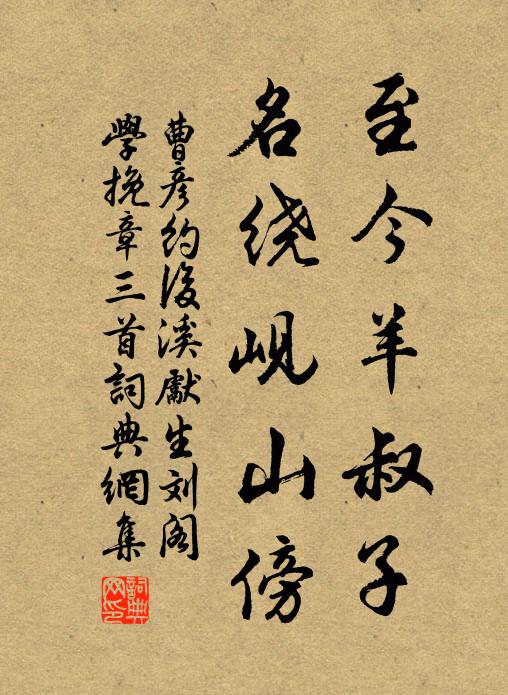 至今羊叔子
名绕岘山傍
曹彦約後溪獻生刘阁
學挽章三首詞典網集
詞典网印